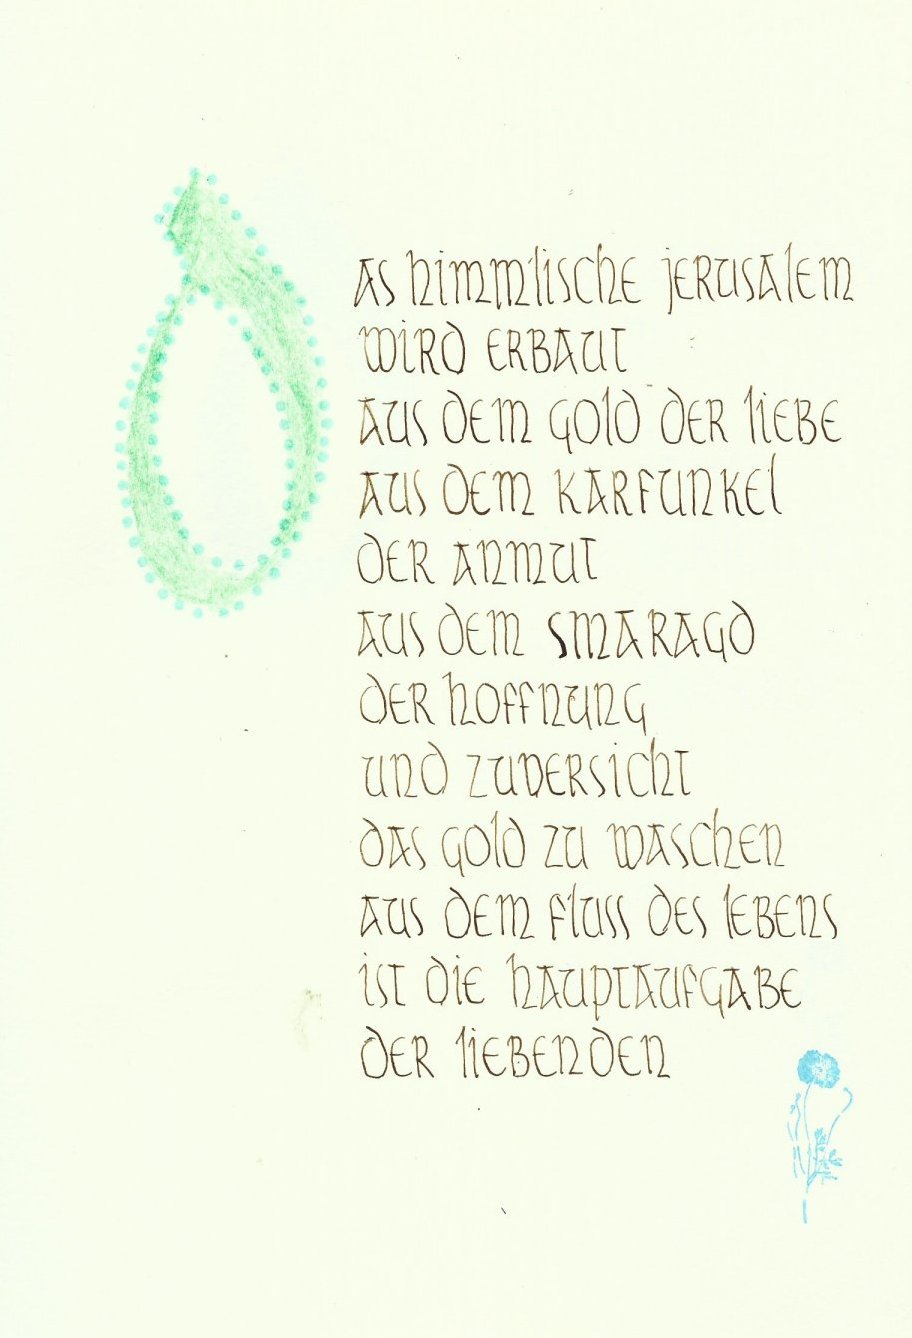 Das himmlische Jerusalem
wird erbaut
aus dem Gold der Liebe
aus dem Karfunkel
der Anmut
aus dem Smaragd
der Hoffnung
und Zuversicht
das Gold zu waschen
aus dem Fluss des Lebens
ist die Hauptaufgabe
der Liebenden